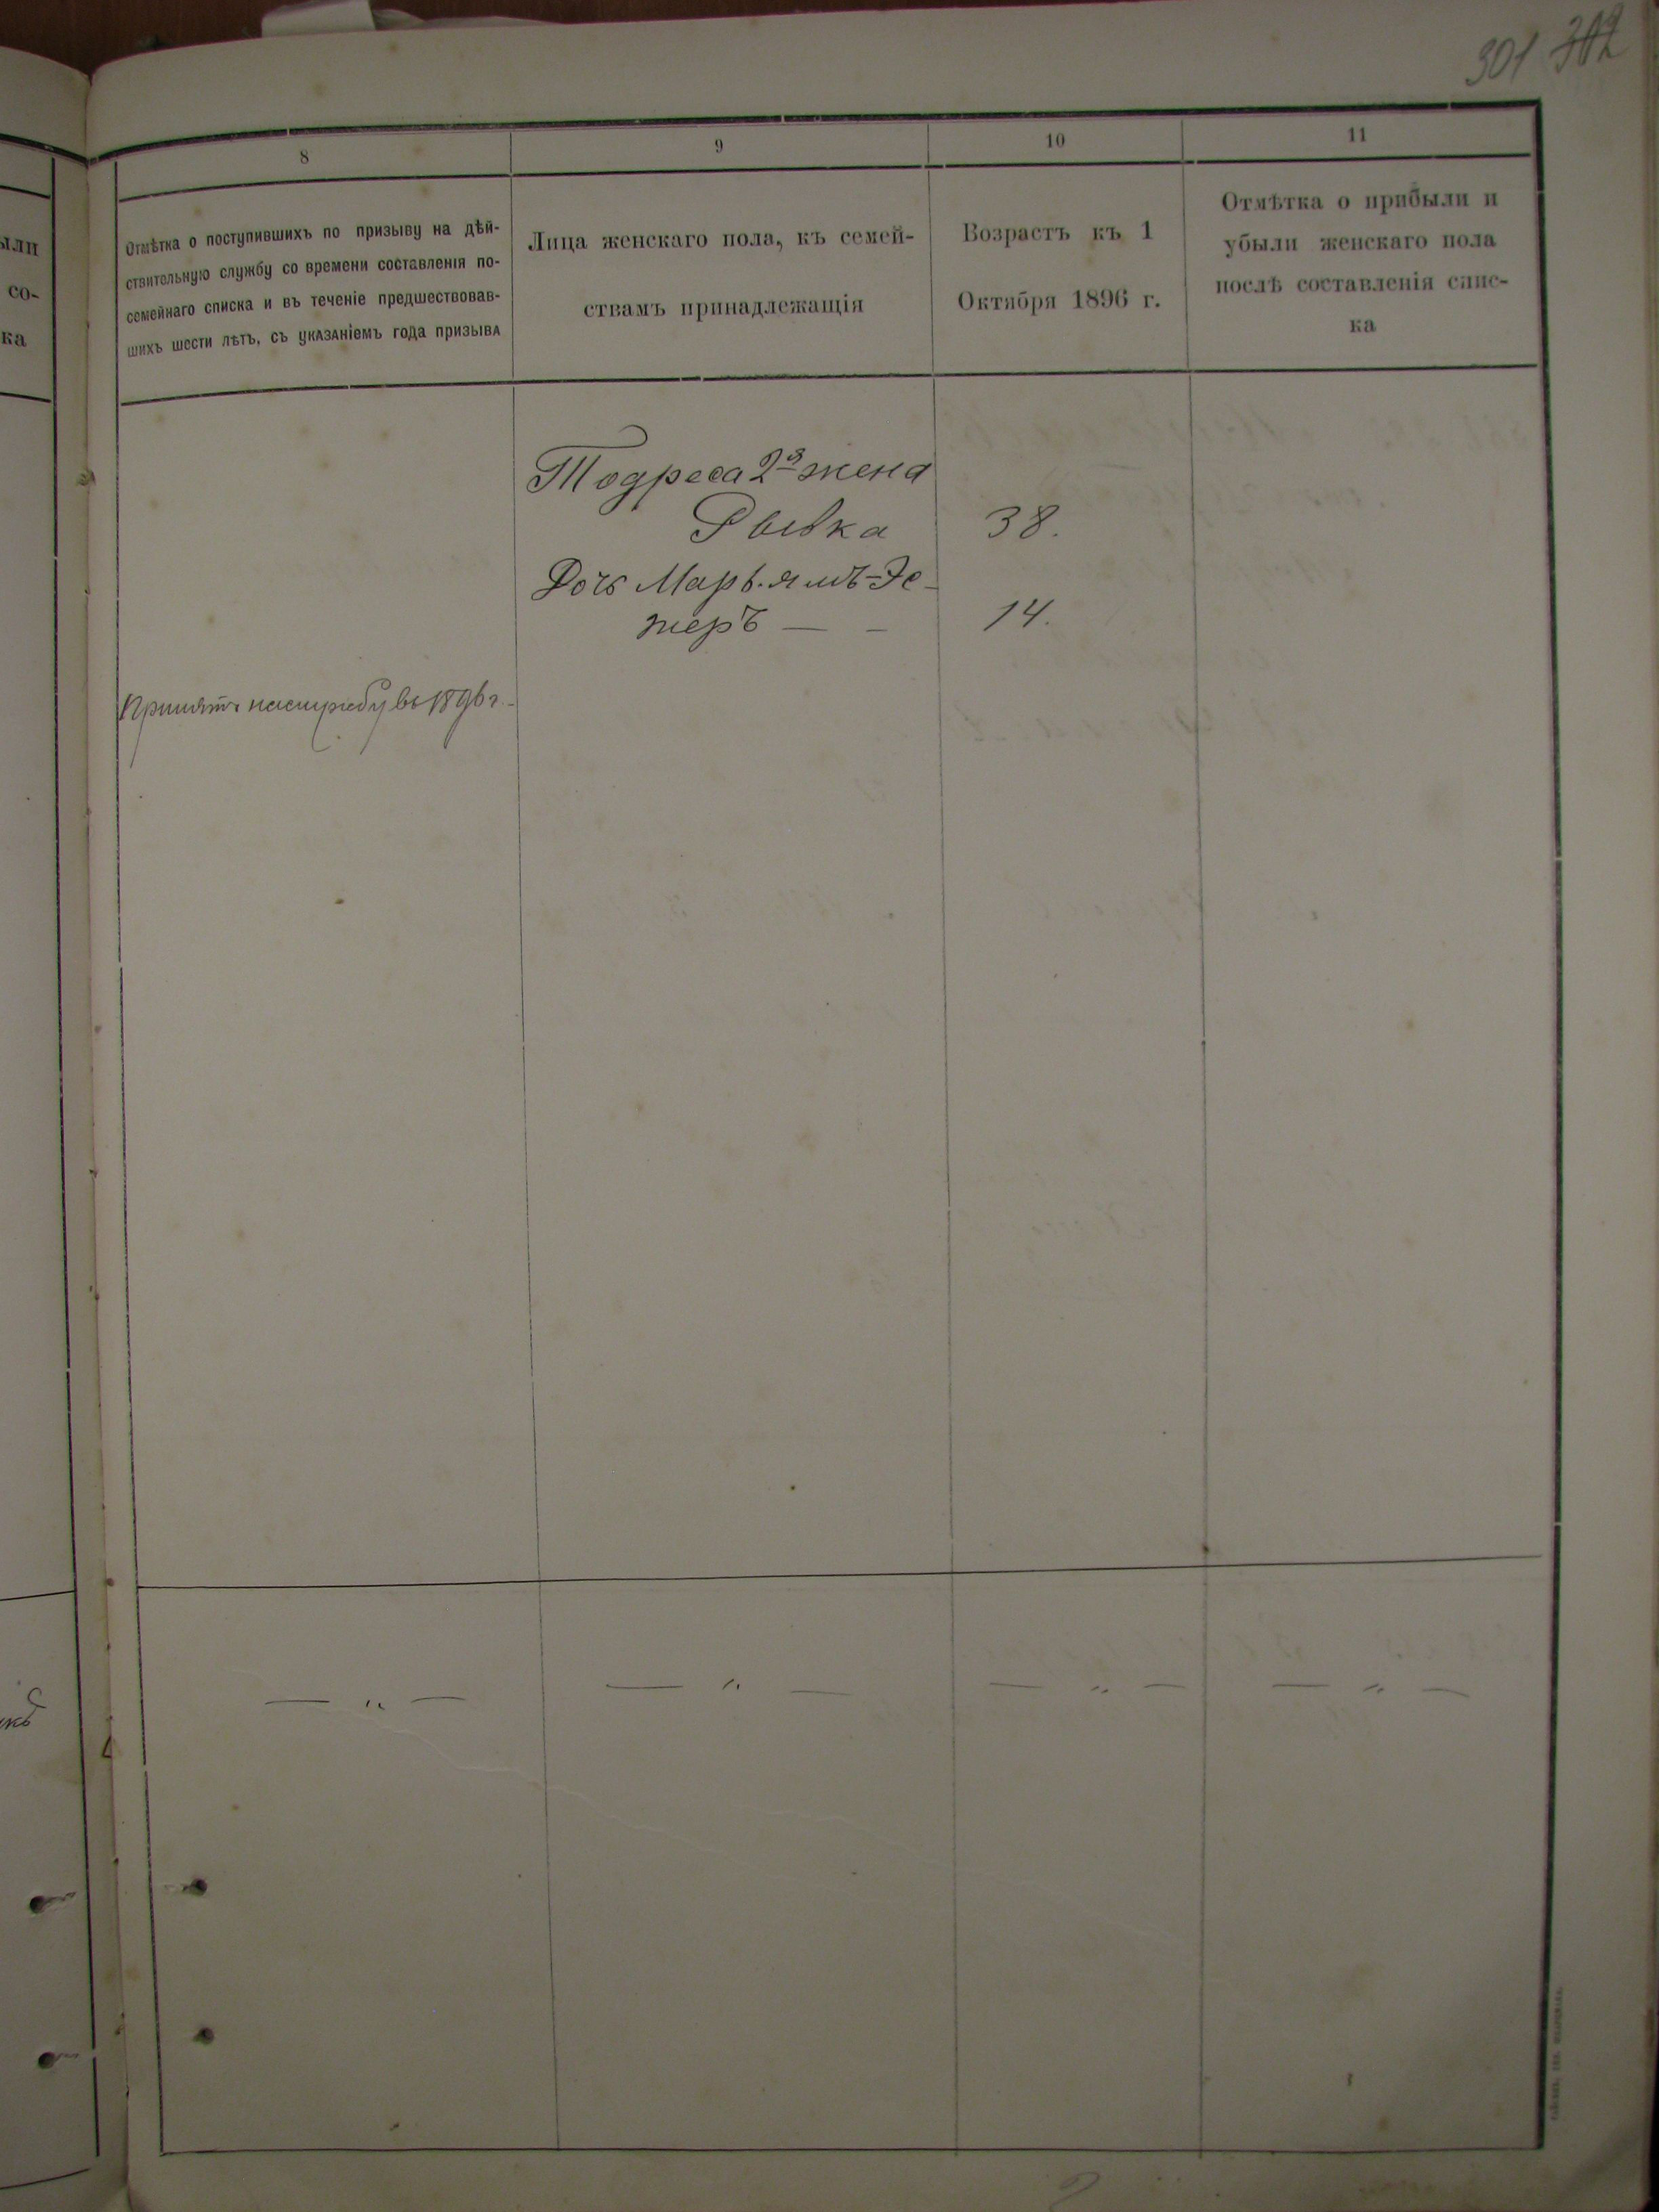 301 302
8
9
10
11
Отмѣтка о поступившихъ по призыву на дѣй-
ствительную службу со времени составленія по-
семейнаго списка и въ теченіе предшествовав-
шихъ шести лѣтъ, съ указаніемъ года призыва
Лица женскаго пола, къ семей-
ствамъ принадлежащія
Возрастъ къ 1
Октября 1896 г.
Отмѣтка о прибыли и
убыли женскаго пола
послѣ составленія спис-
ка
ыли
со-
ка
Тодреса 2я жена
Рывка 38.
Дочь Марьямъ-Эс-
теръ — — 14.
Принятъ на службу въ 1896 г.
— " — — " — — " — — " —